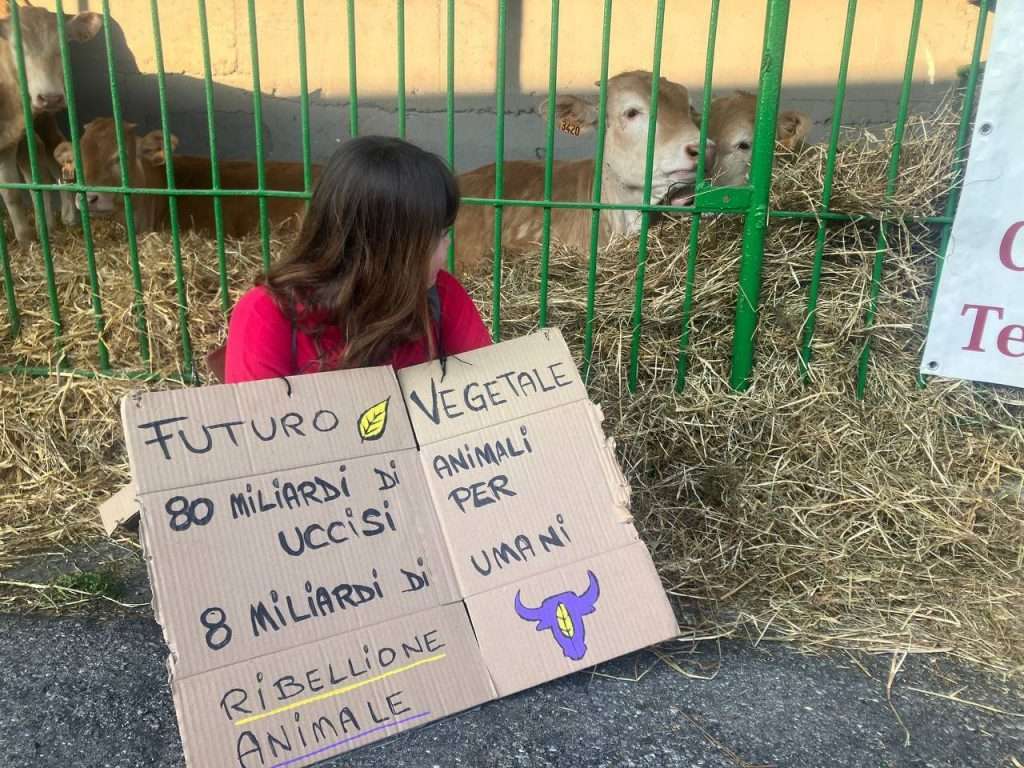 3420
FUTURO VEGETALE
80 MILIARDI DI ANIMALI
UCCISI PER
8 MILIARDI DI UMANI
RIBELLIONE
ANIMALE
Te